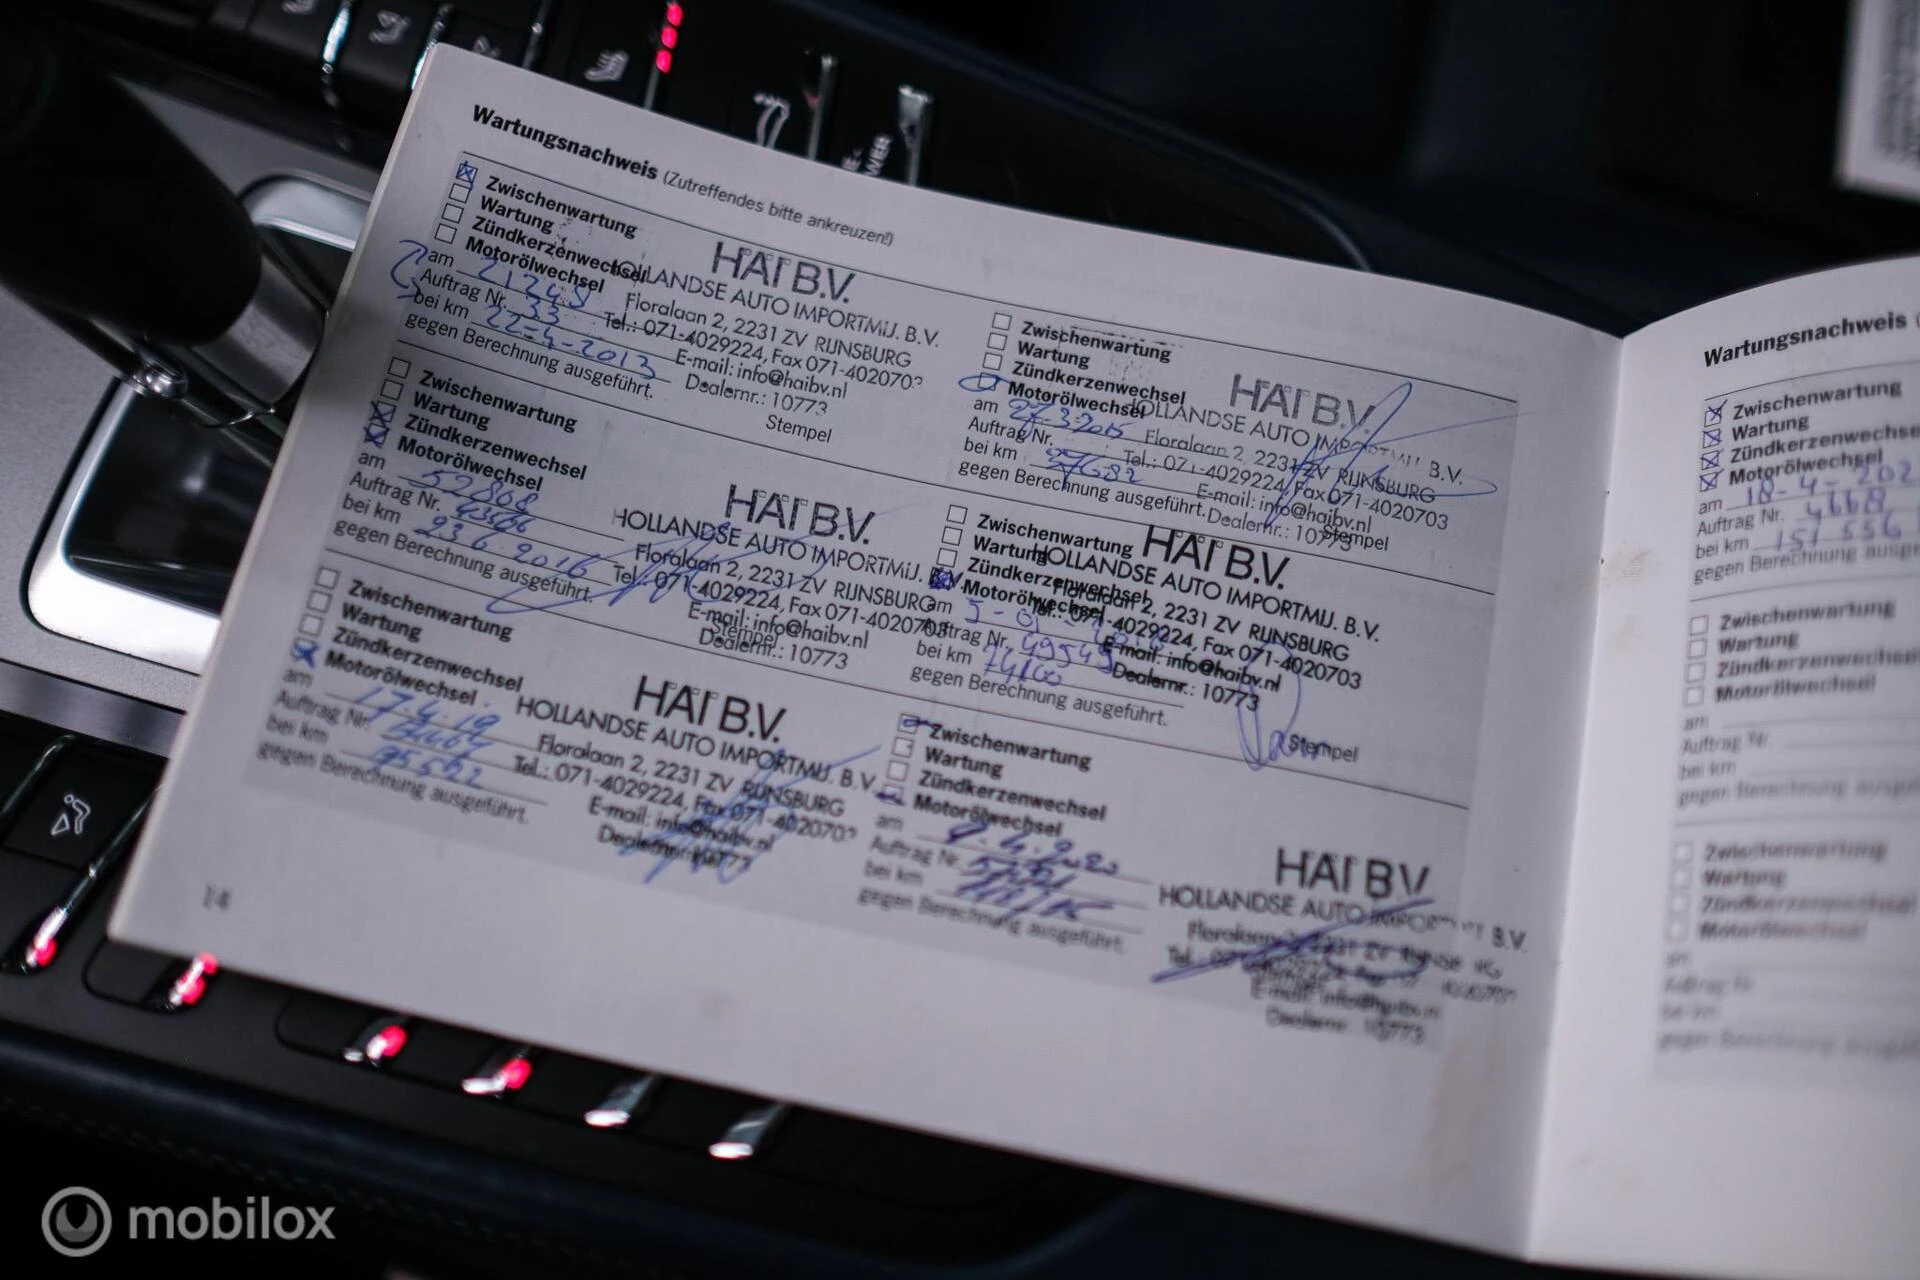 Wartungsnachweis (Zutreffendes bitte ankreuzen!)
Zwischenwartung
Wartung
Zündkerzenwechsel
Motorölwechsel
am 21249
Auftrag Nr. 33
bei km 22-4-2013
gegen Berechnung ausgeführt.
HAI B.V.
HOLLANDSE AUTO IMPORTMIJ. B.V.
Floralaan 2, 2231 ZV RIJNSBURG
Tel.: 071-4029224, Fax 071-4020703
E-mail: info@haibv.nl
Dealernr.: 10773
Stempel
Zwischenwartung
Wartung
Zündkerzenwechsel
Motorölwechsel
am 27.3.2015
Auftrag Nr.
bei km 27682
gegen Berechnung ausgeführt.
HAI B.V.
HOLLANDSE AUTO IMPORTMIJ. B.V.
Floralaan 2, 2231 ZV RIJNSBURG
Tel.: 071-4029224, Fax 071-4020703
E-mail: info@haibv.nl
Dealernr.: 10773
Stempel
Zwischenwartung
Wartung
Zündkerzenwechsel
Motorölwechsel
am 52808
Auftrag Nr. 43566
bei km 23.6.2016
gegen Berechnung ausgeführt.
HAI B.V.
HOLLANDSE AUTO IMPORTMIJ. B.V.
Floralaan 2, 2231 ZV RIJNSBURG
Tel.: 071-4029224, Fax 071-4020703
E-mail: info@haibv.nl
Stempel
Dealernr.: 10773
Zwischenwartung
Wartung
Zündkerzenwechsel
Motorölwechsel
am
Auftrag Nr. 49549
bei km 74100
gegen Berechnung ausgeführt.
HAI B.V.
HOLLANDSE AUTO IMPORTMIJ. B.V.
Floralaan 2, 2231 ZV RIJNSBURG
Tel.: 071-4029224, Fax 071-4020703
E-mail: info@haibv.nl
Dealernr.: 10773
Stempel
Zwischenwartung
Wartung
Zündkerzenwechsel
Motorölwechsel
am 17.4.19
Auftrag Nr.
bei km 95592
gegen Berechnung ausgeführt.
HAI B.V.
HOLLANDSE AUTO IMPORTMIJ. B.V.
Floralaan 2, 2231 ZV RIJNSBURG
Tel.: 071-4029224, Fax 071-402070
E-mail: info@haibv.nl
Dealernr.: 10773
Zwischenwartung
Wartung
Zündkerzenwechsel
Motorölwechsel
am
Auftrag Nr.
bei km
gegen Berechnung ausgeführt.
HAI B.V.
HOLLANDSE AUTO IMPORTMIJ. B.V.
Floralaan 2, 2231 ZV
Tel.:
E-mail: info@haibv.nl
Dealernr.: 10773
14
Wartungsnachweis
Zwischenwartung
Wartung
Zündkerzenwechse
Motorölwechsel
am 18-4-202
Auftrag Nr. 4668
bei km 151 556
gegen Berechnung ausge
Zwischenwartung
Wartung
Zündkerzenwechse
Motorölwechsel
am
Auftrag Nr.
bei km
gegen Berechnung ausge
Zwischenwartung
Wartung
Zündkerzenwechsel
Motorölwechsel
am
Auftrag Nr.
bei km
gegen Berechnung
mobilox